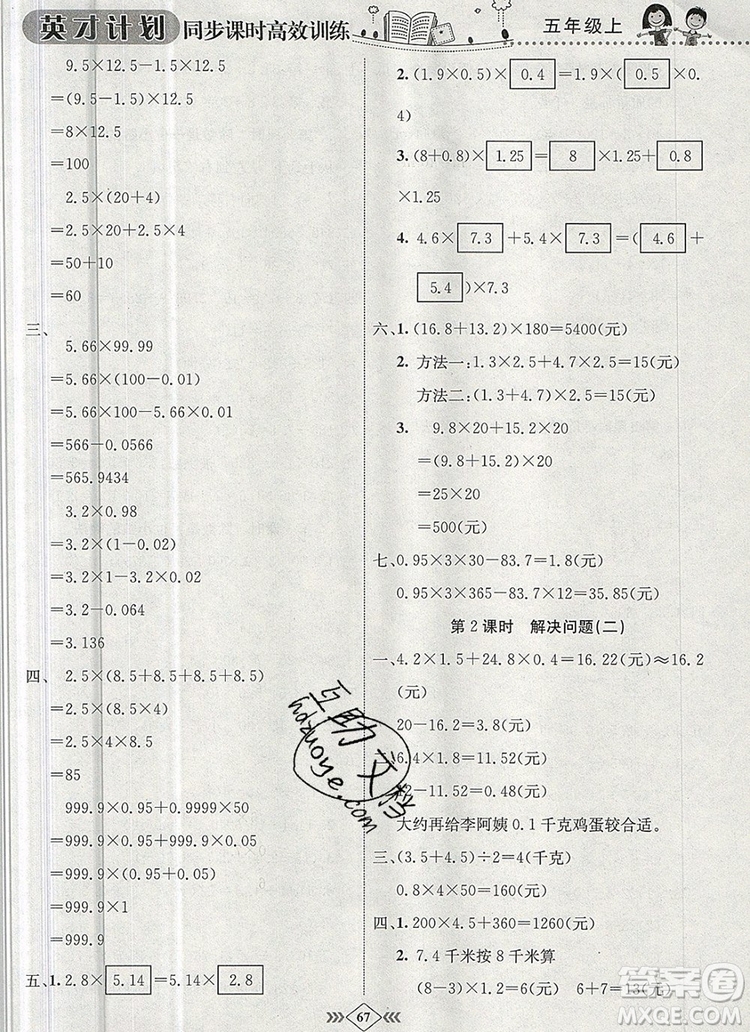 英才计划 同步课时高效训练
五年级上
9.5×12.5-1.5×12.5
=(9.5-1.5)×12.5
=8×12.5
=100
2.5×(20+4)
=2.5×20+2.5×4
=50+10
=60
三、
5.66×99.99
=5.66×(100-0.01)
=5.66×100-5.66×0.01
=566-0.0566
=565.9434
3.2×0.98
=3.2×(1-0.02)
=3.2-0.064
=3.136
四、 2.5×(8.5+8.5+8.5+8.5)
=2.5×(8.5×4)
=2.5×4×8.5
=85
999.9×0.5+0.9999×50
=999.9×0.5+999.9×0.05
=999.9×1
=999.9
五、1. 2.8×5.14=5.14×2.8
2. (1.9×0.5)×0.4=1.9×(0.5×0.
4)
3. (8+0.8)×1.25=8×1.25+0.8
×1.25
4. 4.6×7.3+5.4×7.3=(4.6+
5.4)×7.3
六、1. (16.8+13.2)×180=5400(元)
2. 方法一:1.3×2.5+4.7×2.5=15(元)
方法二:(1.3+4.7)×2.5=15(元)
3. 9.8×20+15.2×20
=(9.8+15.2)×20
=25×20
=500(元)
七、0.95×3×30-83.7=1.8(元)
0.95×3×365-83.7×12=35.85(元)
第2课时 解决问题(二)
一、4.2×1.5+24.8×0.4=16.22(元)≈16.2
(元)
20-16.2=3.8(元)
6.4×1.8=11.52(元)
12-11.52=0.48(元)
大约再给李阿姨0.1千克鸡蛋较合适。
三、(3.5+4.5)÷2=4(千克)
0.8×4=3.2(元)
四、1. 200×4.5+360=1260(元)
2. 7.4千米按8千米算
(8-3)×1.2=6(元) 6+7=13(元)
67
互助文档
hdzuoye.com
答案圈
MXQE.COM